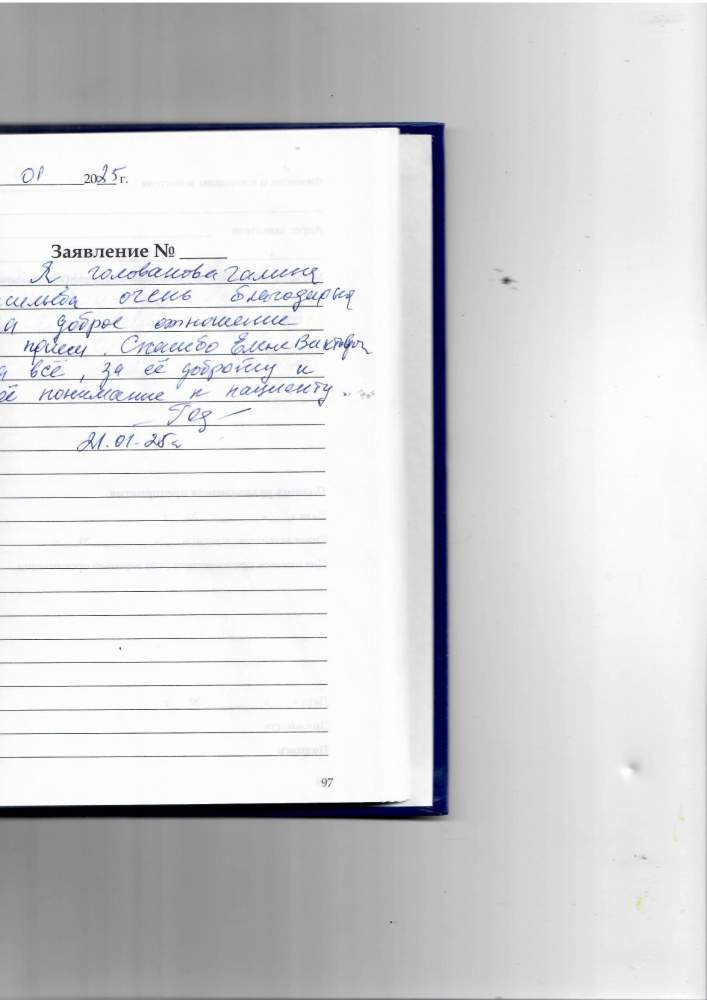 01 2025 г.
Заявление №
Я Голованова Галина
очень благодарна
доброе отношение
прием. Спасибо Елене Викторовне
всё, за её доброту и
понимание к пациенту.
21.01.25 г
97